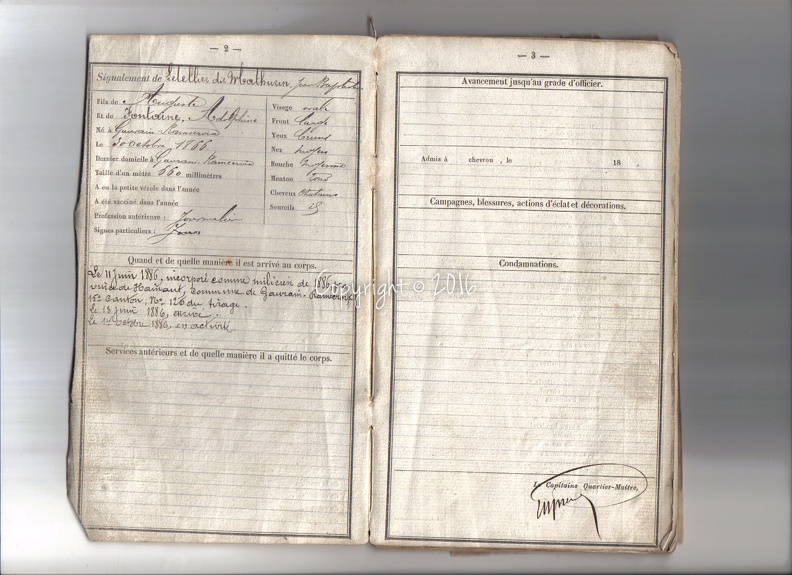 — 2 —
Signalement de Letellier dit Mathurin, Jean Baptiste
Fils de Auguste
Et de Fontaine, Adelphine
Né à Gaurain Ramecroix
Le 30 octobre 1866
Dernier domicile à Gaurain-Ramecroix
Taille d'un mètre. 660 millimètres
A eu la petite vérole dans l'année
A été vacciné dans l'année
Profession antérieure : Journalier
Signes particuliers :
Visage ovale
Front
Yeux
Nez moyen
Bouche moyenne
Menton rond
Cheveux châtains
Sourcils id
Quand et de quelle manière il est arrivé au corps.
Le 11 juin 1886, incorporé comme milicien de 1886
de Hainaut, commune de Gaurain-Ramecroix
15e Canton, No 126 du tirage.
Le 13 juin 1886, arrivé.
Le 1er Octobre 1886, en activité
Services antérieurs et de quelle manière il a quitté le corps.
— 3 —
Avancement jusqu'au grade d'officier.
Admis à chevron , le 18 .
Campagnes, blessures, actions d'éclat et décorations.
Condamnations.
Le Capitaine Quartier-Maître,
Copyright © 2016